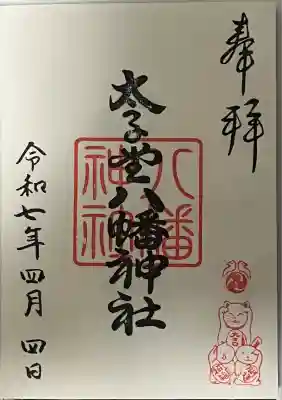 奉拝
太子堂八幡神社
八幡
神社
令和七年四月四日
大吉